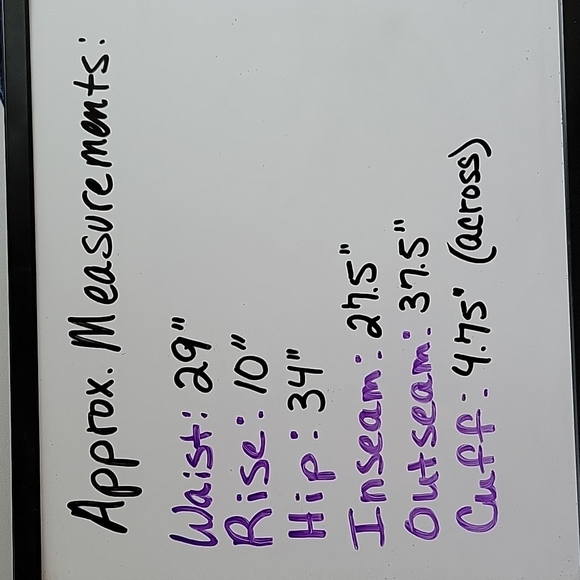 Approx. Measurements:
Waist: 29"
Rise: 10"
Hip: 34"
Inseam: 27.5"
Outseam: 37.5"
Cuff: 4.75" (across)